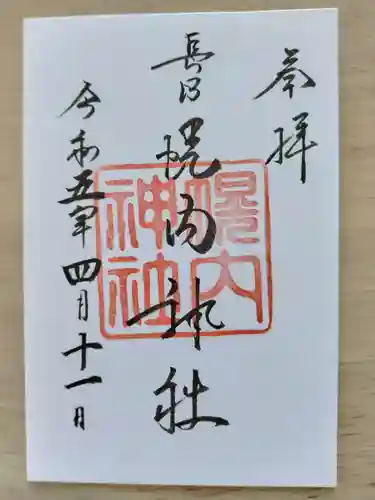 奉拝
長沼
幌内神社
令和五年四月十一日
幌内
神社